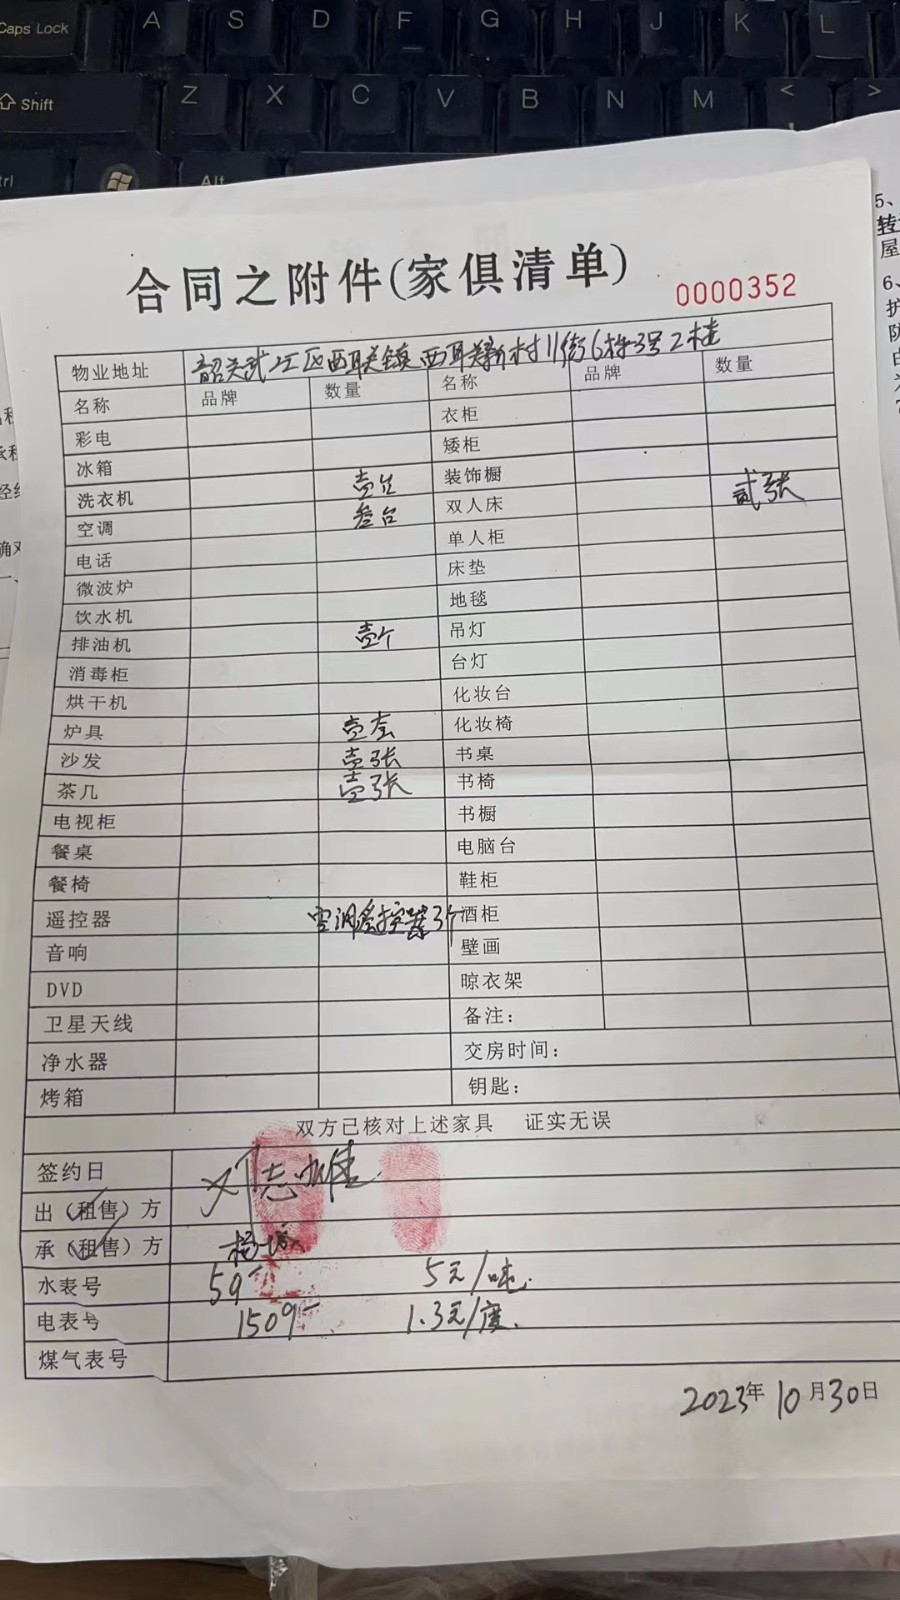 Caps Lock A S D F G H J K L
Shift Z X C V B N M < >
Alt
5、
6、
合同之附件(家俱清单)
0000352
物业地址 韶关武江区西联镇西联新村11街6栋3号2楼
名称 品牌 数量 名称 品牌 数量
彩电 衣柜
冰箱 矮柜
洗衣机 壹台 装饰橱
空调 叁台 双人床 贰张
电话 单人柜
微波炉 床垫
饮水机 地毯
排油机 壹个 吊灯
消毒柜 台灯
烘干机 化妆台
炉具 壹套 化妆椅
沙发 壹张 书桌
茶几 壹张 书椅
电视柜 书橱
餐桌 电脑台
餐椅 鞋柜
遥控器 空调遥控器3个 酒柜
音响 壁画
DVD 晾衣架
卫星天线 备注：
净水器 交房时间：
烤箱 钥匙：
双方已核对上述家具 证实无误
签约日
出（租售）方
承（租售）方
水表号 59 5元/吨.
电表号 1509 1.3元/度.
煤气表号
2023年10月30日